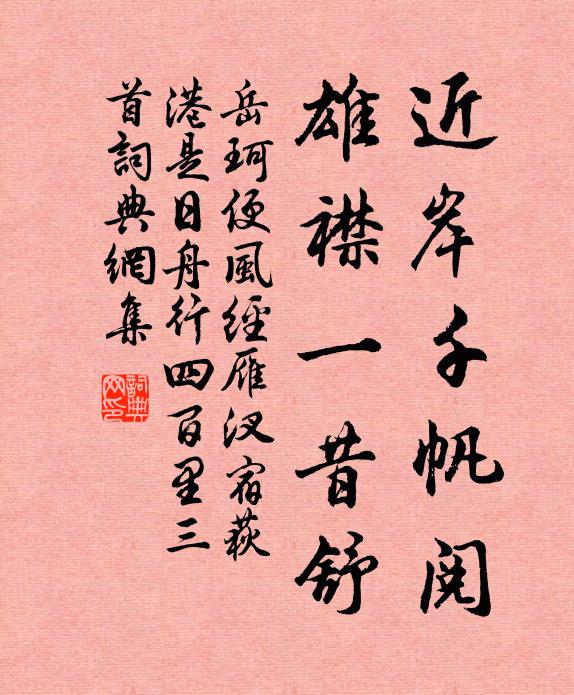 近岸千帆閱
雄襟一昔舒
岳珂便風經雁汊宿萩
港是日舟行四百里三
首詞典網集
詞典
网印